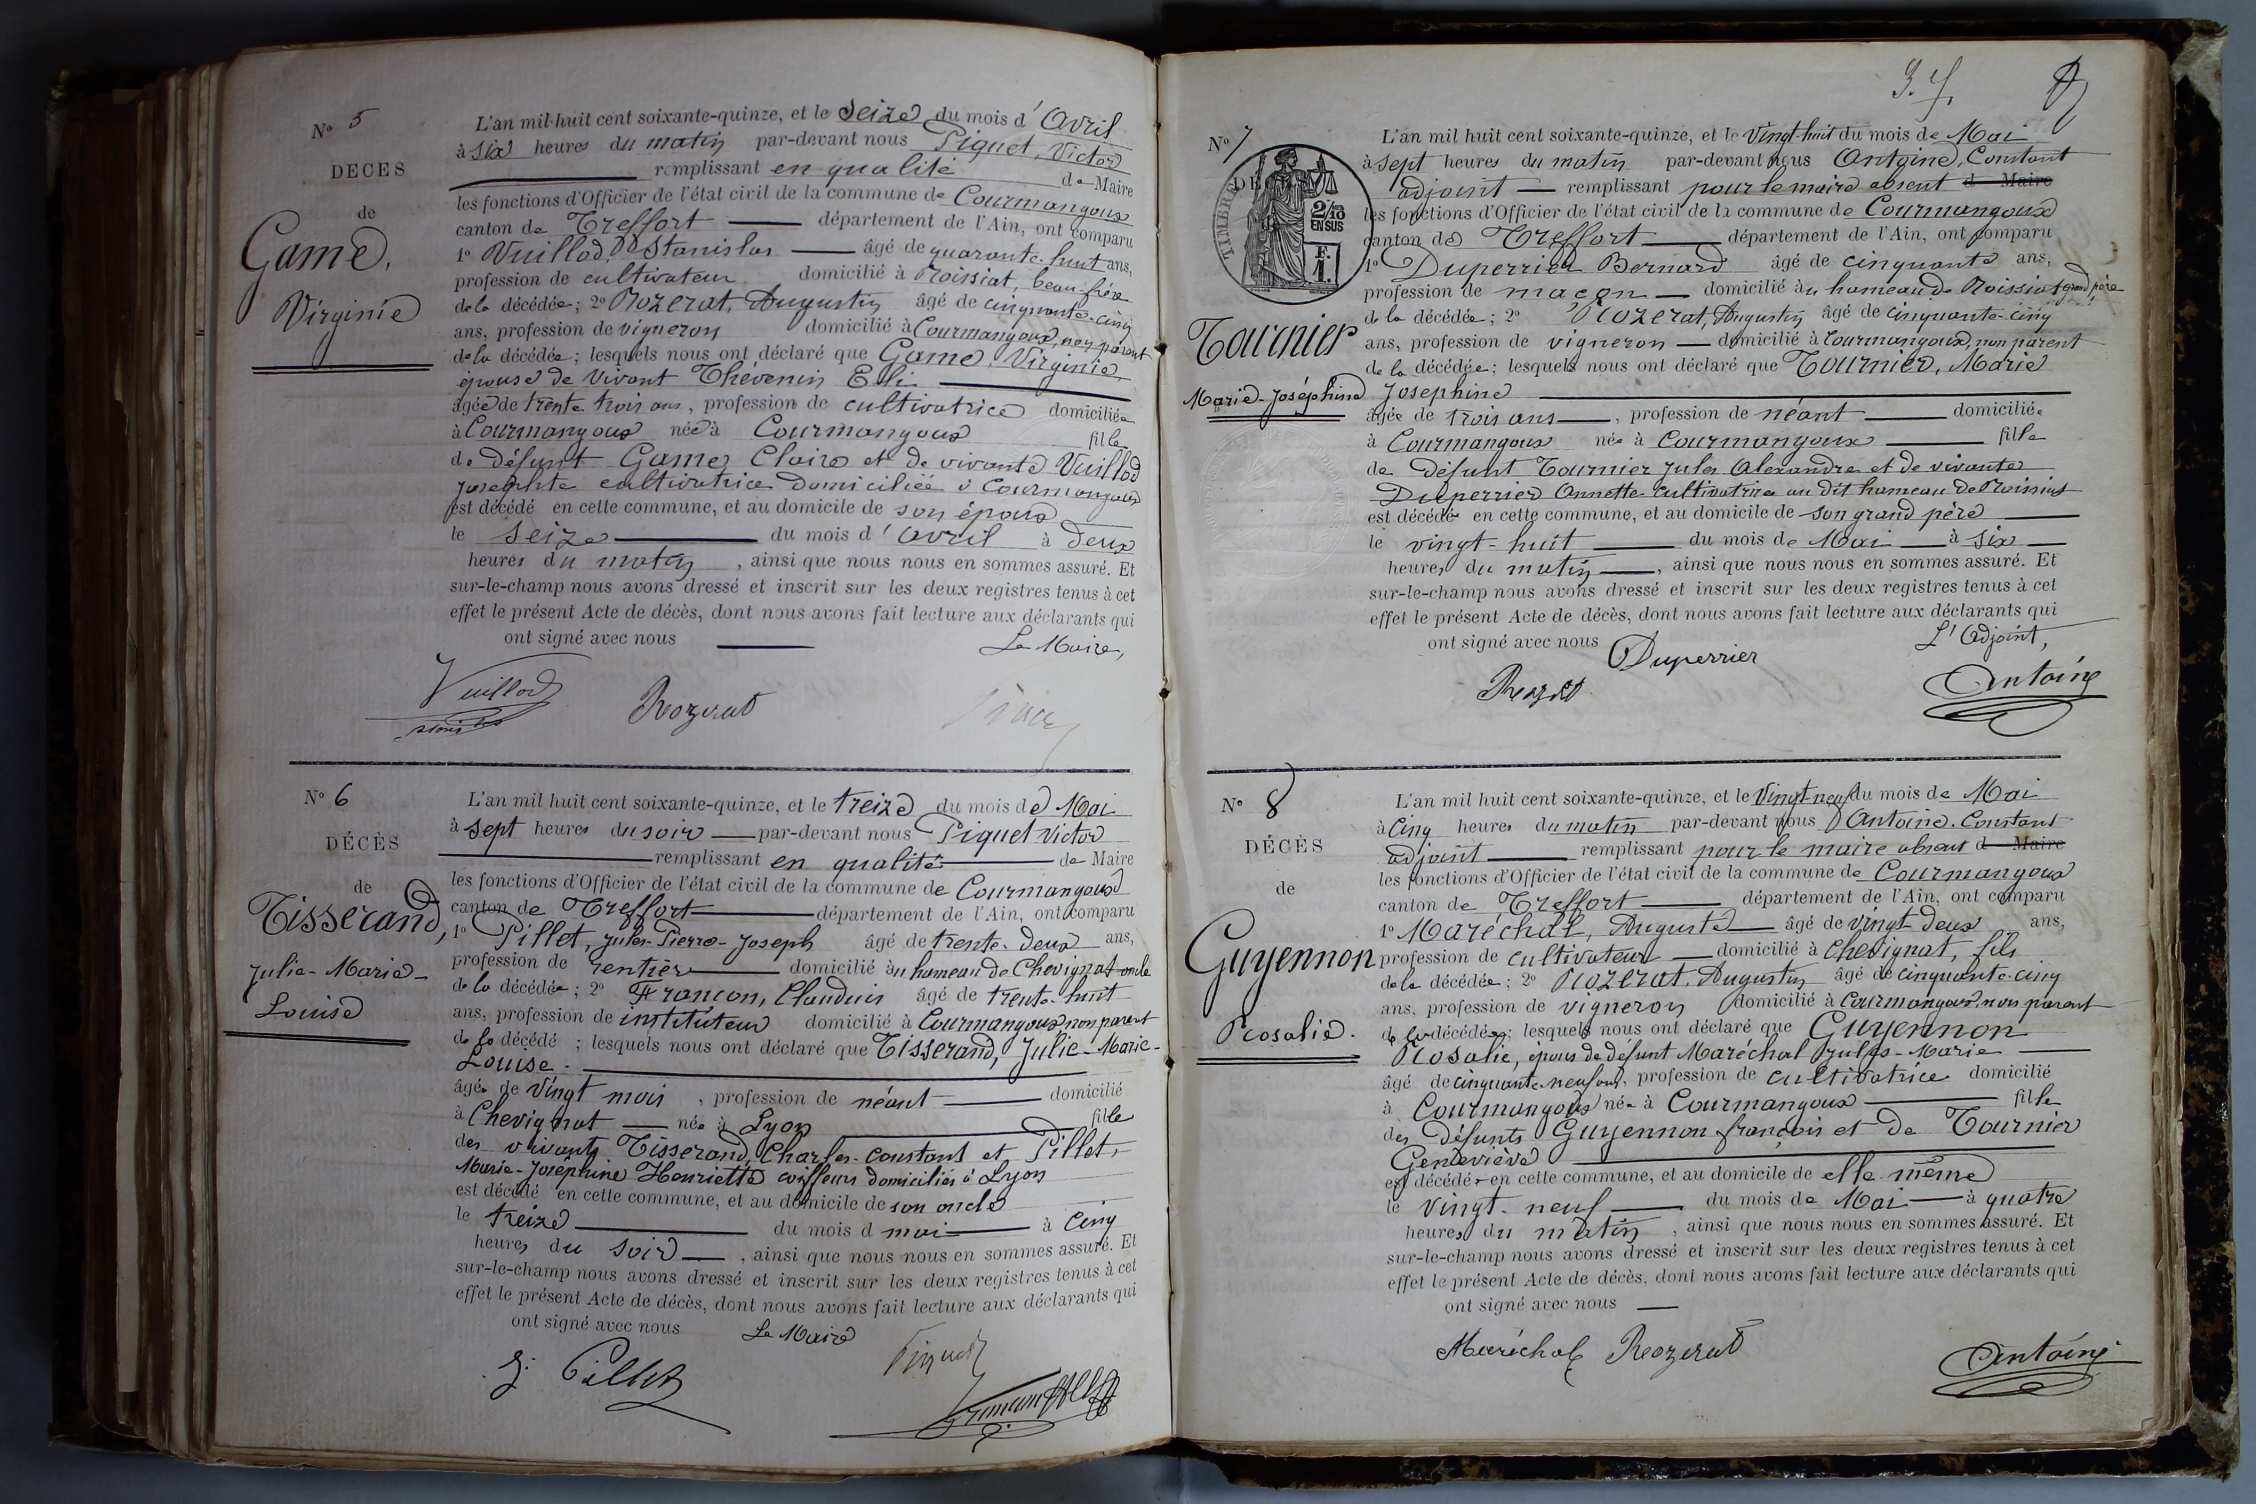 N° 5
DECES
de
Game,
Virginie
L'an mil huit cent soixante-quinze, et le seize du mois d'Avril
à six heures du matin par-devant nous Piquet, Victor
remplissant en qualité de Maire
les fonctions d'Officier de l'état civil de la commune de Courmangoux
canton de Treffort département de l'Ain, ont comparu
1° Vuillod, Stanislas âgé de quarante-huit ans,
profession de cultivateur domicilié à Roissiat, beau-frère
de la décédée; 2° Rozerat, Augustin âgé de cinquante-cinq
ans, profession de vigneron domicilié à Courmangoux, non parent
de la décédée; lesquels nous ont déclaré que Game, Virginie,
épouse de vivant Thévenin Eli
âgée de trente trois ans, profession de cultivatrice domiciliée
à Courmangoux née à Courmangoux fille
de défunt Game Claire et de vivante Vuillod
Josephte cultivatrice domiciliée à Courmangoux
est décédé en cette commune, et au domicile de son époux
le seize du mois d'avril à deux
heures du matin, ainsi que nous nous en sommes assuré. Et
sur-le-champ nous avons dressé et inscrit sur les deux registres tenus à cet
effet le présent Acte de décès, dont nous avons fait lecture aux déclarants qui
ont signé avec nous
Le Maire,
Vuillod
Rozerat
N° 6
DÉCÈS
de
Tisserand,
Julie-Marie-
Louise
L'an mil huit cent soixante-quinze, et le treize du mois de Mai
à sept heures du soir par-devant nous Piquet Victor
remplissant en qualité de Maire
les fonctions d'Officier de l'état civil de la commune de Courmangoux
canton de Treffort département de l'Ain, ont comparu
1° Pillet, Jules-Pierre-Joseph âgé de trente-deux ans,
profession de rentier domicilié au hameau de Chevignat oncle
de la décédée; 2° Francon, Claudius âgé de trente-huit
ans, profession de instituteur domicilié à Courmangoux non parent
de la décédé; lesquels nous ont déclaré que Tisserand, Julie-Marie-
Louise.
âgée de vingt mois, profession de néant domicilié
à Chevignat née à Lyon fille
des vivants Tisserand, Charles-Constant et Pillet,
Marie-Josephine Henriette coiffeurs domiciliés à Lyon
est décédé en cette commune, et au domicile de son oncle
le treize du mois d mai à cinq
heures du soir, ainsi que nous nous en sommes assuré. Et
sur-le-champ nous avons dressé et inscrit sur les deux registres tenus à cet
effet le présent Acte de décès, dont nous avons fait lecture aux déclarants qui
ont signé avec nous Le Maire
J. Pillet
Piquet
3. f.
N° 7
DÉ
TIMBRE
2/10
EN SUS
F.
1.
Tournier
Marie-Joséphine
L'an mil huit cent soixante-quinze, et le vingt-huit du mois de Mai
à sept heures du matin par-devant nous Antoine, Constant
adjoint remplissant pour le maire absent d Maire
les fonctions d'Officier de l'état civil de la commune de Courmangoux
canton de Treffort département de l'Ain, ont comparu
1° Duperrier Bernard âgé de cinquante ans,
profession de maçon domicilié au hameau de Roissiat grand père
de la décédée; 2° Rozerat, Augustin âgé de cinquante-cinq
ans, profession de vigneron domicilié à Courmangoux, non parent
de la décédée; lesquels nous ont déclaré que Tournier, Marie
Josephine
âgée de trois ans, profession de néant domiciliée
à Courmangoux née à Courmangoux fille
de défunt Tournier Jules Alexandre et de vivante
Duperrier Annette cultivatrice au dit hameau de Roissiat
est décédée en cette commune, et au domicile de son grand père
le vingt-huit du mois de Mai à six
heures du matin, ainsi que nous nous en sommes assuré. Et
sur-le-champ nous avons dressé et inscrit sur les deux registres tenus à cet
effet le présent Acte de décès, dont nous avons fait lecture aux déclarants qui
ont signé avec nous
L'Adjoint,
Duperrier
Antoine
N° 8
DÉCÈS
de
Guyennon
Rosalie.
L'an mil huit cent soixante-quinze, et le vingt-neuf du mois de Mai
à cinq heures du matin par-devant nous Antoine, Constant
adjoint remplissant pour le maire absent d Maire
les fonctions d'Officier de l'état civil de la commune de Courmangoux
canton de Treffort département de l'Ain, ont comparu
1° Maréchal, Auguste âgé de vingt-deux ans,
profession de cultivateur domicilié à Chevignat, fils
de la décédée; 2° Rozerat, Augustin âgé de cinquante-cinq
ans, profession de vigneron domicilié à Courmangoux, non parent
de la décédée; lesquels nous ont déclaré que Guyennon
Rosalie, épous de défunt Maréchal Jules-Marie
âgé de cinquante-neuf ans, profession de cultivatrice domicilié
à Courmangoux née à Courmangoux fille
des défunts Guyennon françois et de Tournier
Geneviève
est décédée en cette commune, et au domicile de elle même
le vingt-neuf du mois de Mai à quatre
heures du matin, ainsi que nous nous en sommes assuré. Et
sur-le-champ nous avons dressé et inscrit sur les deux registres tenus à cet
effet le présent Acte de décès, dont nous avons fait lecture aux déclarants qui
ont signé avec nous
Maréchal Rozerat
Antoine